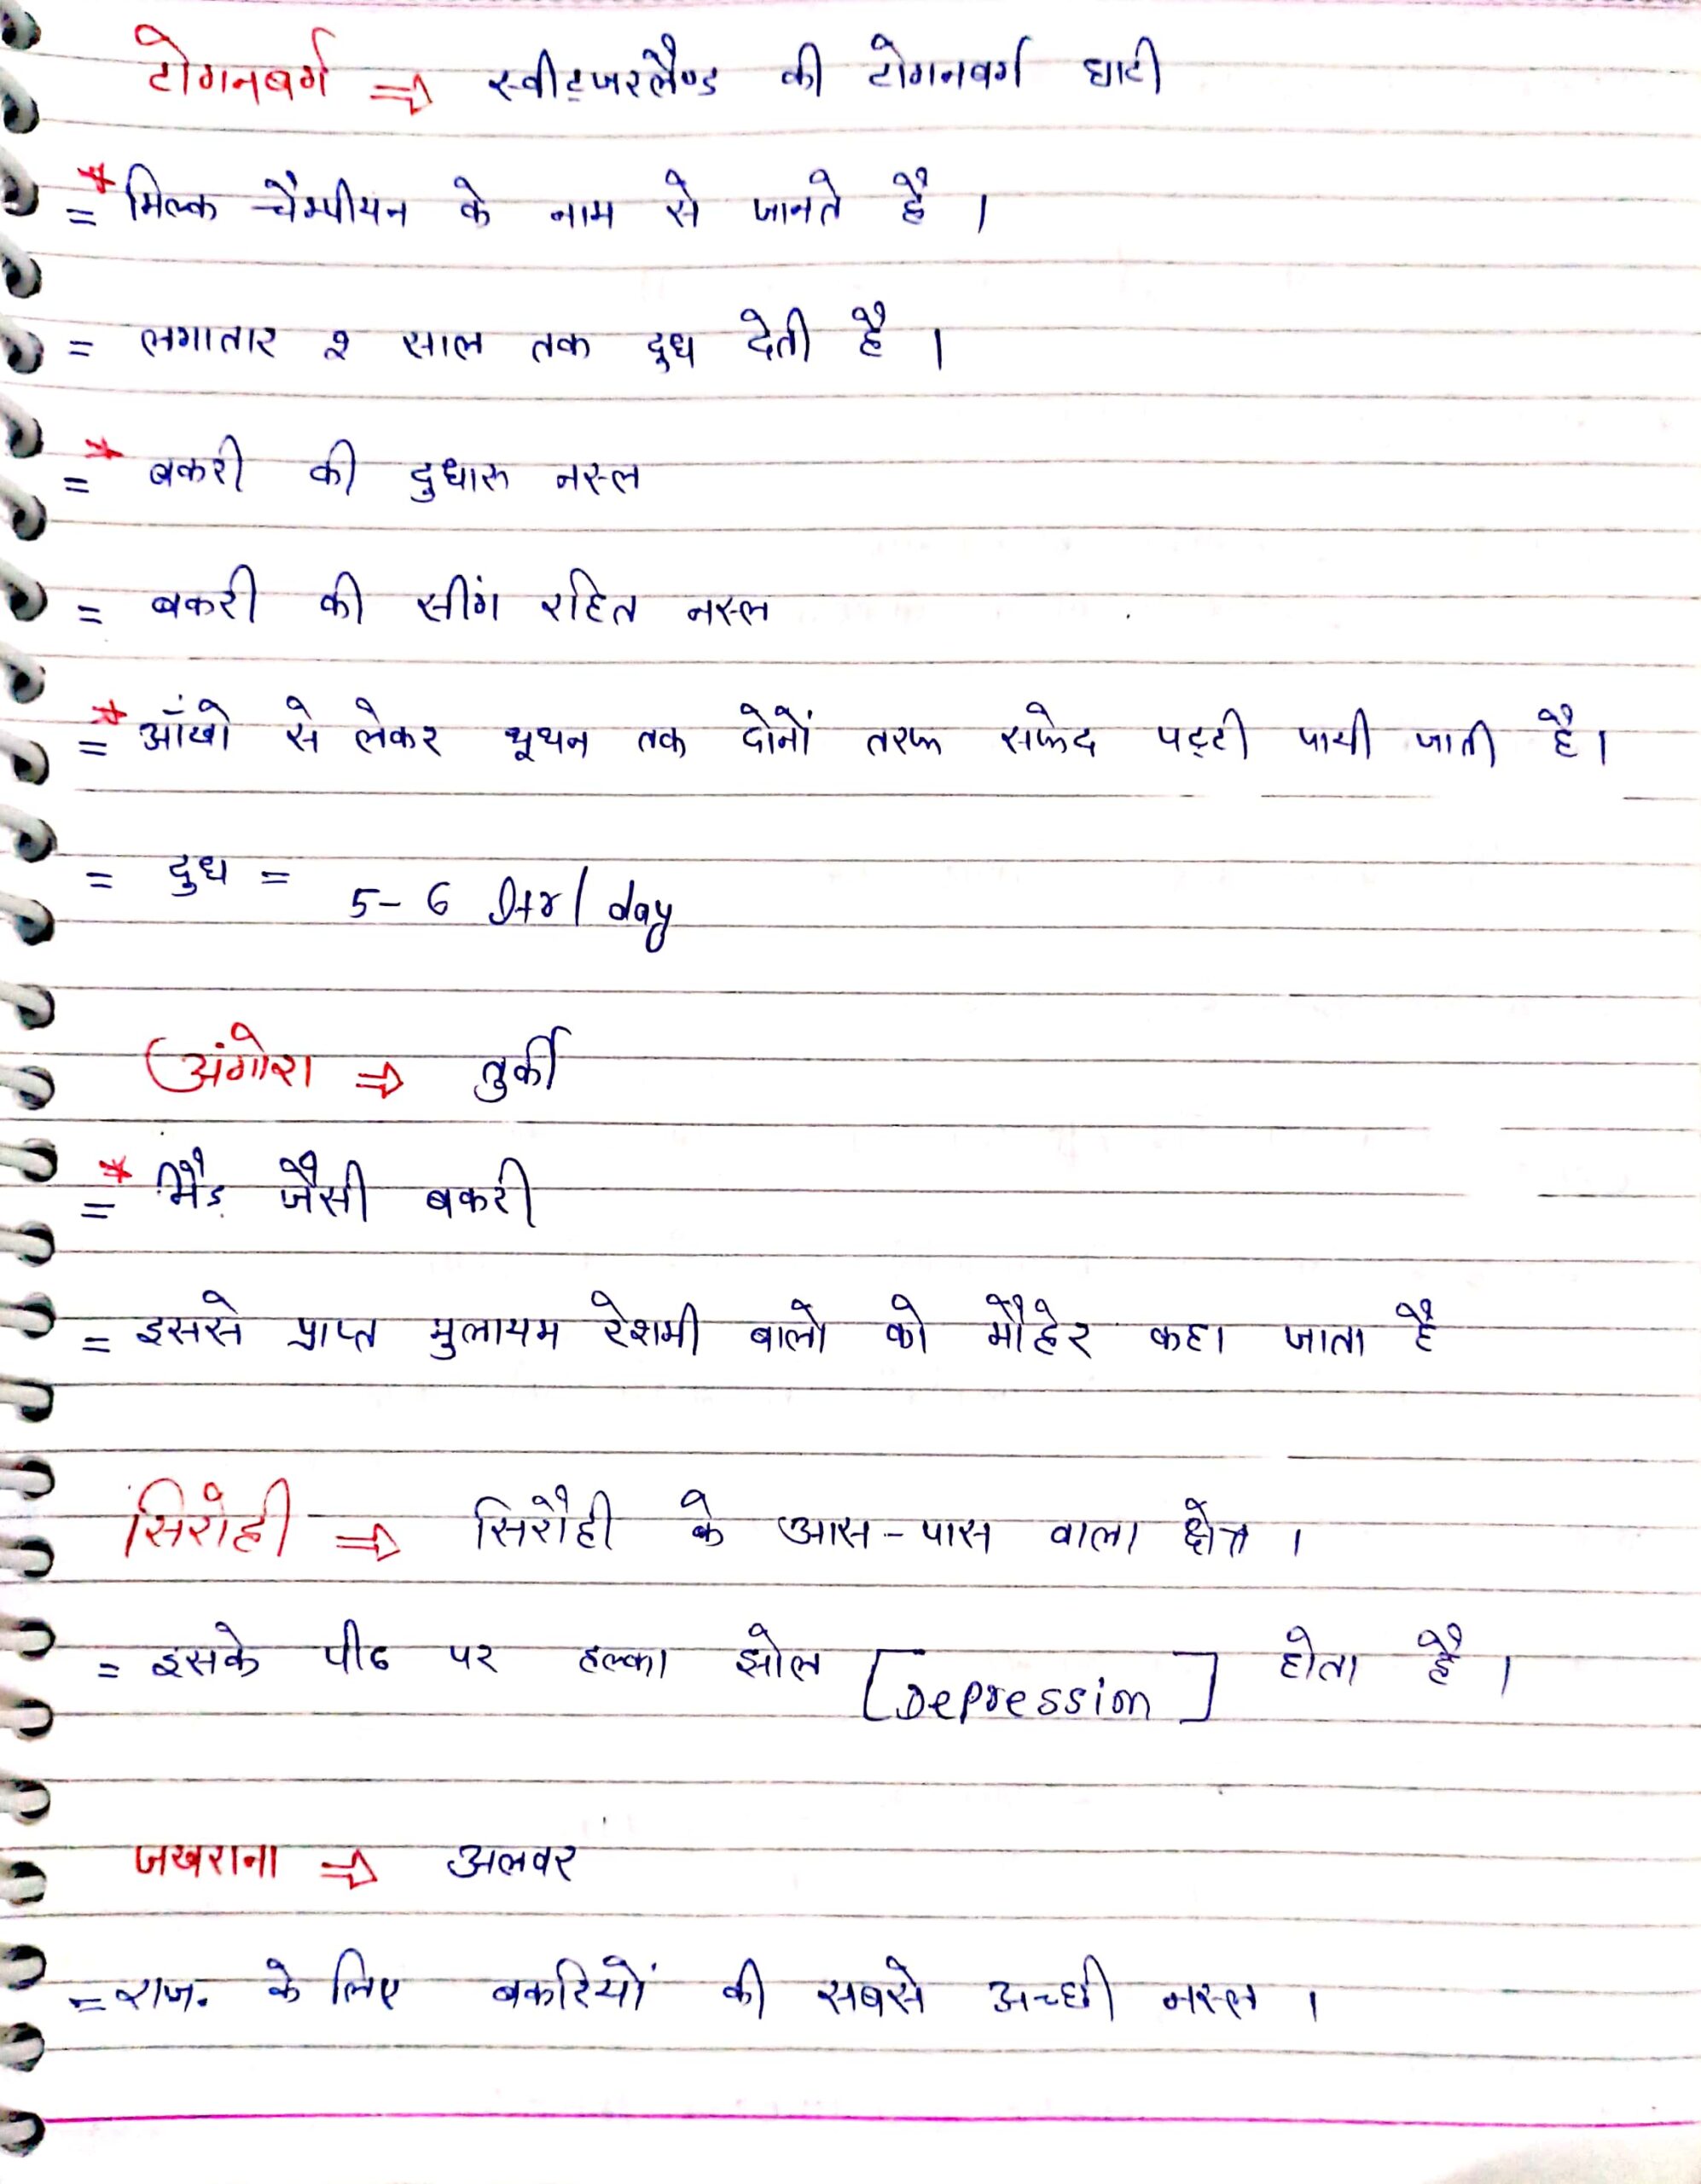 टोगनबर्ग ⇒ स्वीट्जरलैण्ड की टोगनबर्ग घाटी
=* मिल्क चैम्पीयन के नाम से जानते है ।
= लगातार २ साल तक दुध देती है ।
=* बकरी की दुधारू नस्ल
= बकरी की सींग रहित नस्ल
=* आँखो से लेकर थूथन तक दोनों तरफ सफेद पट्टी पायी जाती है ।
= दुध = 5-6 ltr/day
अंगोरा ⇒ तुर्की
=* भैड़ जैसी बकरी
= इससे प्राप्त मुलायम रेशमी बालो को मौहेर कहा जाता है
सिरोही ⇒ सिरौही के आस-पास वाला क्षेत्र ।
= इसके पीठ पर हल्का झोल [Depression] होता है ।
जखराना ⇒ अलवर
= राज. के लिए बकरियों की सबसे अच्छी नस्ल ।